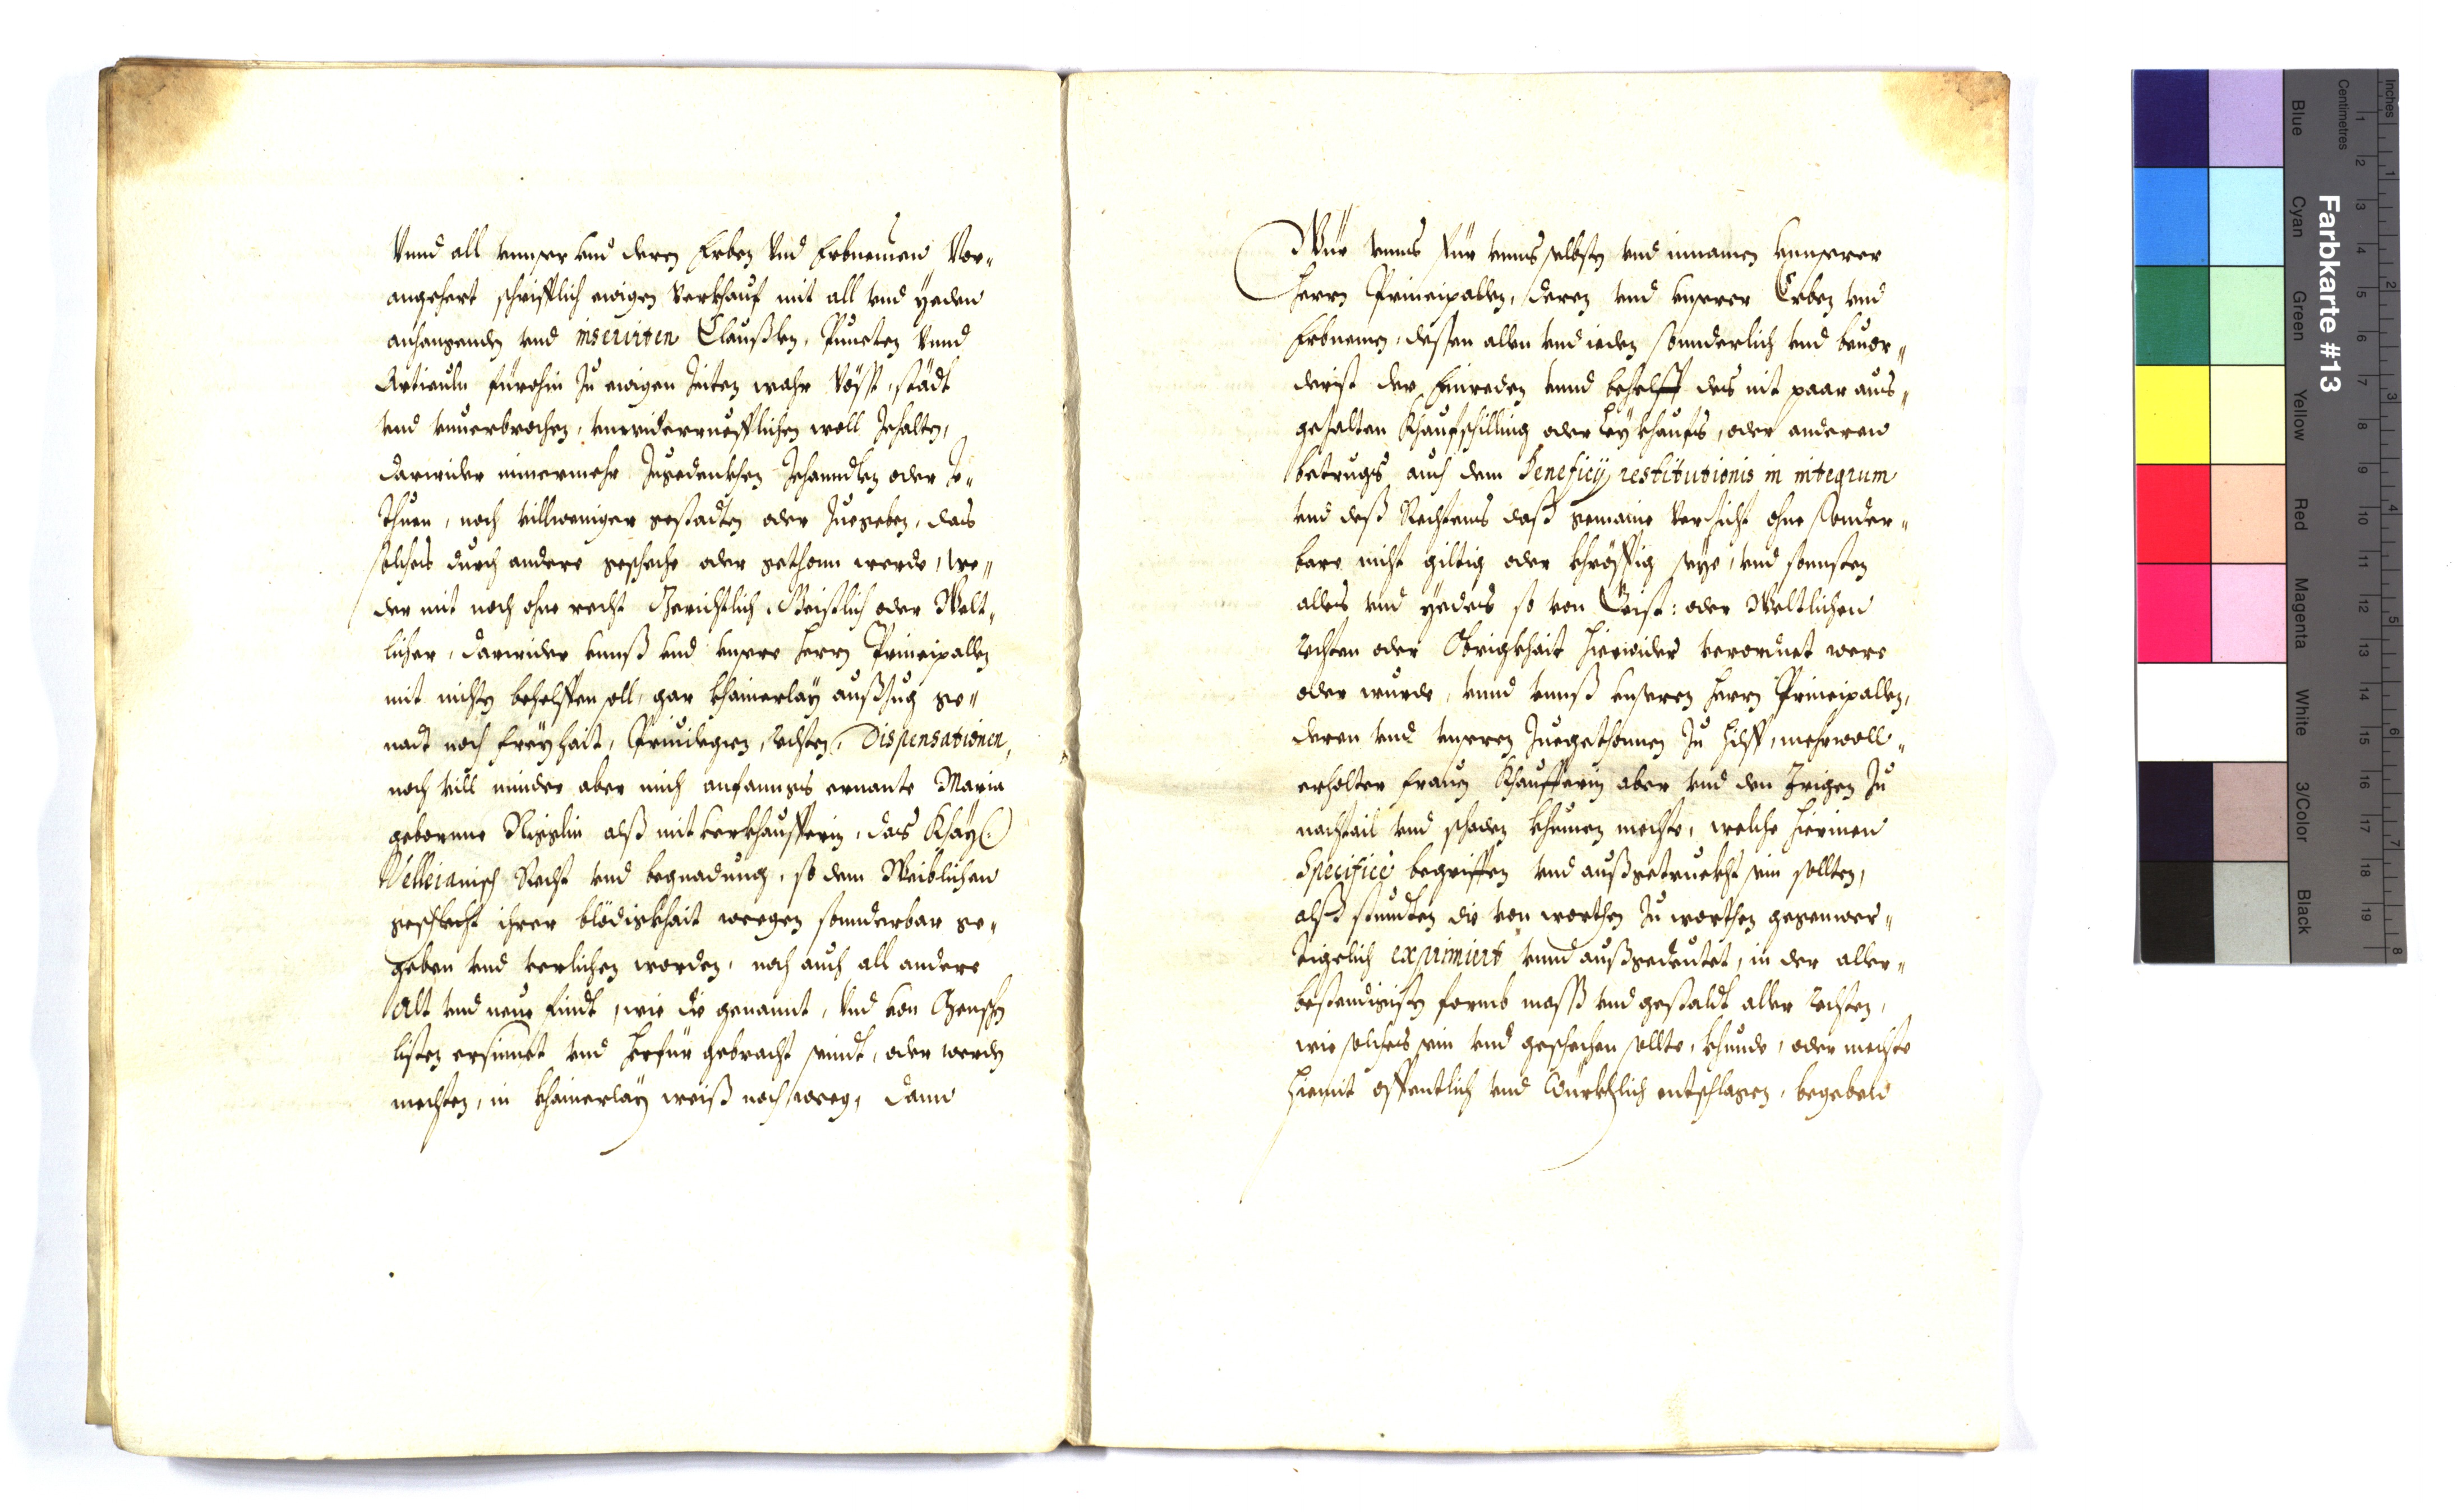 Vnnd all vnnser vnd deren Erben Vnd Erbnemen Vor„
angehert schrifftlich ewigen Verkhauf mit all vnd yeden
anhangenden vnd inserirten Claußlen, Puncten Vnnd
Articuln fürohin Zu ewigen Zeiten wahr vösst, städt
vnd vnuerbrochen, vnwiderruefflichen woll Zehalten,
darwider nimermehr Zugedenkhen Zehanndlen oder Zu„
Thuen, noch villweniger gestadten oder Zuegeben, das
solches durch andere gescheche oder gethonn werde, we„
der mit noch ohne recht Gerichtlich, Geistlich oder Welt„
licher, darwider vnnß vnd vnsere herrn Principallen
mit nichten behelffen soll, gar khainerlay außzug ge„
nadt noch freyhait, Priuilegien, rechten, Dispensationen,
noch vill minder aber mich anfanngs ernante Maria
geborrne Nisslin alß mitverkhaufferin, das Khay:
Velleianisch Recht vnd begnadung, so dem Weiblichen
geschlecht ihrer blödigkhait weegen sonnderbar ge„
geben vnd verlichen worden, noch auch all andere
Alt vnd neue findt, wie die genannt, Vnd von Menschen
listen ersinnet vnd herfür gebracht seindt, oder werden
mechten, in khainerlay weiß noch weeg, dann
Wür vnns für vnns selbsten vnd innamen vnnserer
herrn Principallen, deren vnd vnserer Erben vnd
Erbnemen, dessen allen vnd ieden sonnderlich vnd beuor„
derist der Einreden vnnd behelff des nit paar aus„
gehalten Khaufschilling oder Leykhaufs, oder anderen
betrugs auch dem Beneficij restitutionis in integrum
vnd deß Rechtens daß gemaine Verzicht ohne sonder„
bare nicht giltig oder khröfftig seye, vnd sonnsten
alles vnd yedes so von Geist: oder Weltlichen
rechten oder Obrigkhait hierwider verordnet were
oder wurde, vnnd vnnß vnseren herrn Principallen,
deren vnd vnseren Zuegethonnen Zu hilff, mehrwoll„
erholter frauen Khaufferin aber vnd den Irigen Zu
nachtail vnd schaden khumen mechte, welche hierinen
Specificè begriffen vnd außgetruckht sein sollten,
alß stundten die von worthen Zu worthen gegenwer„
tigelich exprimiert vnnd außgedeutet, in der aller„
bestendigisten formb mass vnd gestaldt aller rechten,
wie solches sein vnd geschechen sollte, khunde, oder mechte
hiemit offentlich vnd würkhlich entschlagen, begeben